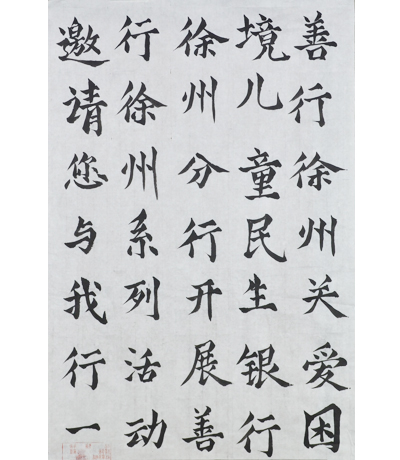 善行徐州关爱困
境儿童民生银行
徐州分行开展善
行徐州系列活动
邀请您与我行一